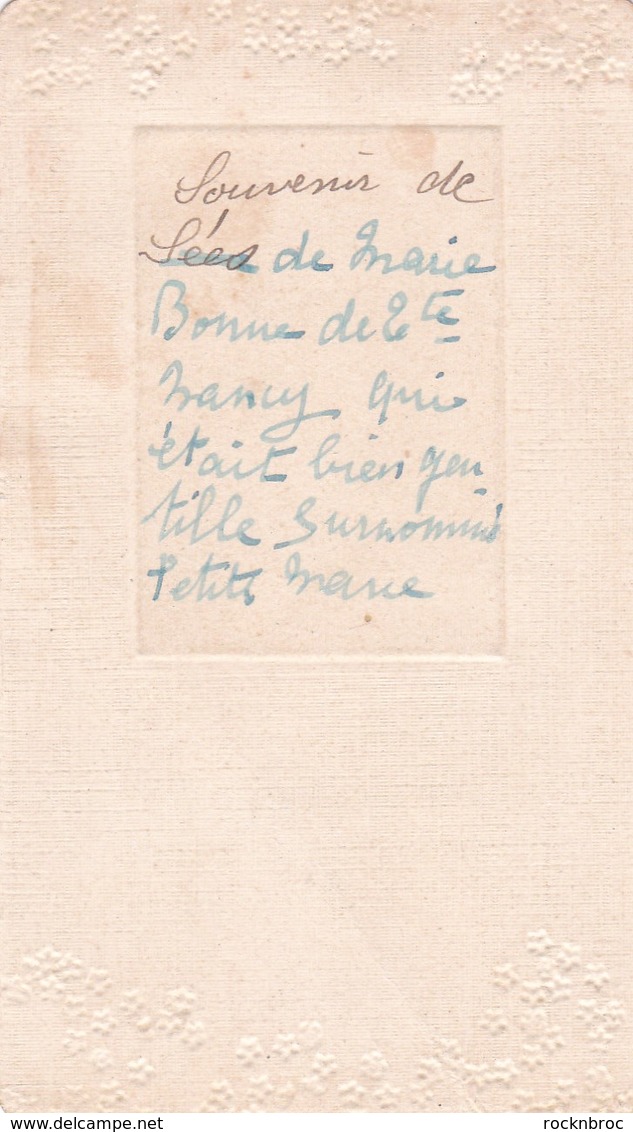 Souvenir de
Sées de Marie
Bonne de Tte
Nancy qui
était bien gen
tille surnommé
Petite Marie
delcampe.net
rocknbroc